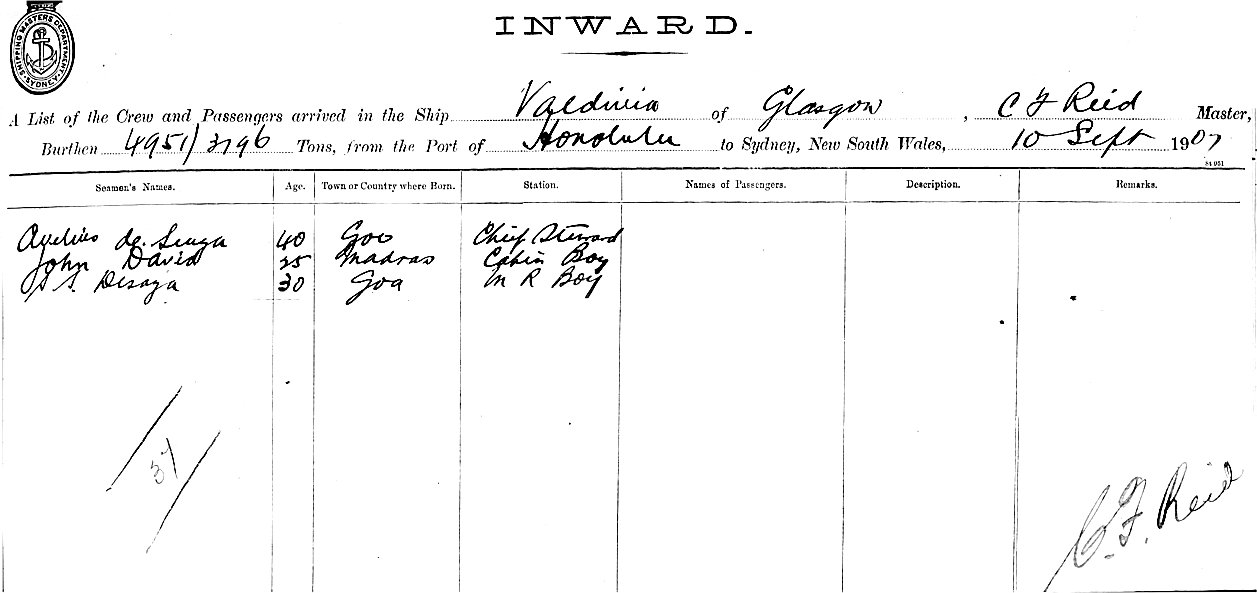 SHIPPING MASTERS DEPARTMENT. SYDNEY
INWARD.
A List of the Crew and Passengers arrived in the Ship Valdivia of Glasgow, C F Reid Master,
Burthen 4951/3796 Tons, from the Port of Honolulu to Sydney, New South Wales, 10 Sept 1907
Seamen's Names. Age. Town or Country where Born. Station. Names of Passengers. Description. Remarks.
de 40 Goa Chief Steward
John David 25 Madras Cabin Boy
30 Goa M R Boy
37
C. F. Reid